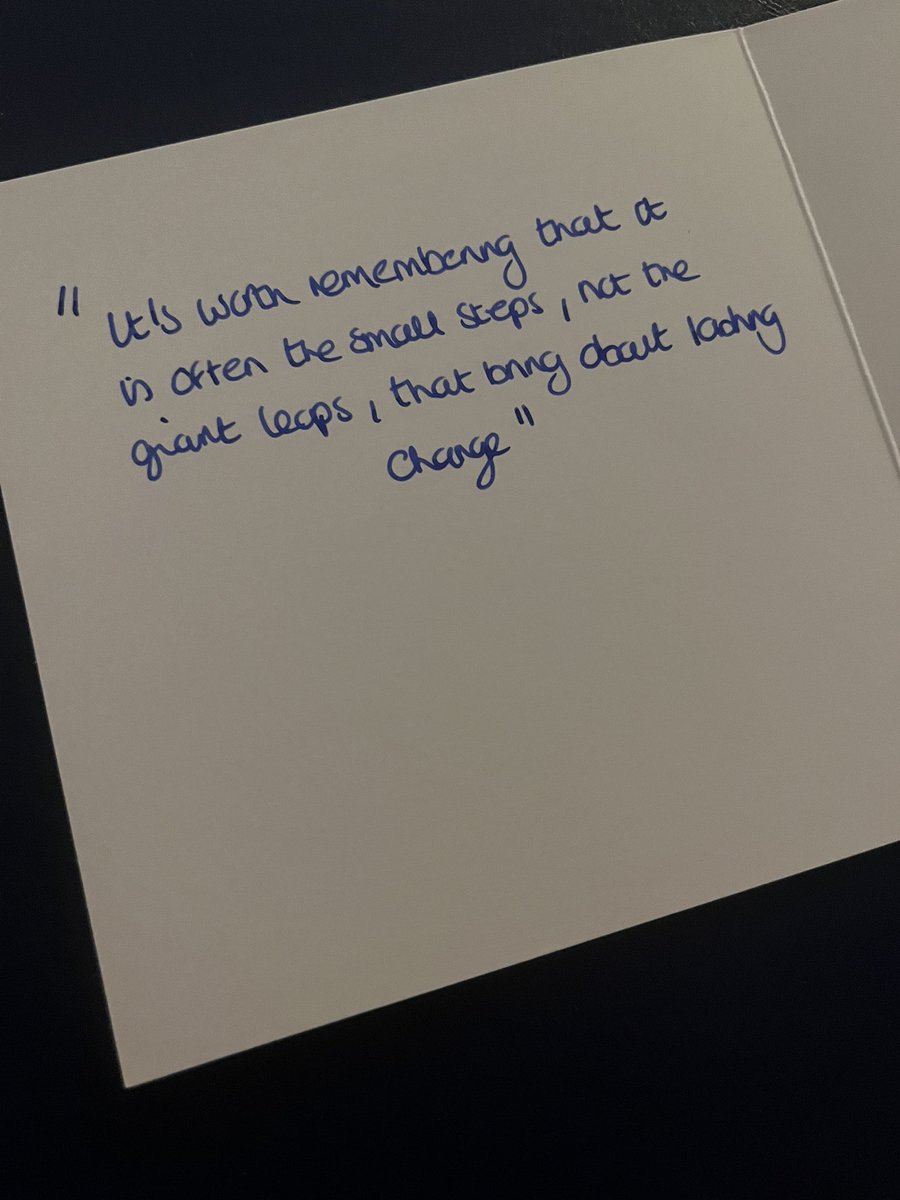 "It's worth remembering that it
is often the small steps, not the
giant leaps, that bring about lasting
change"